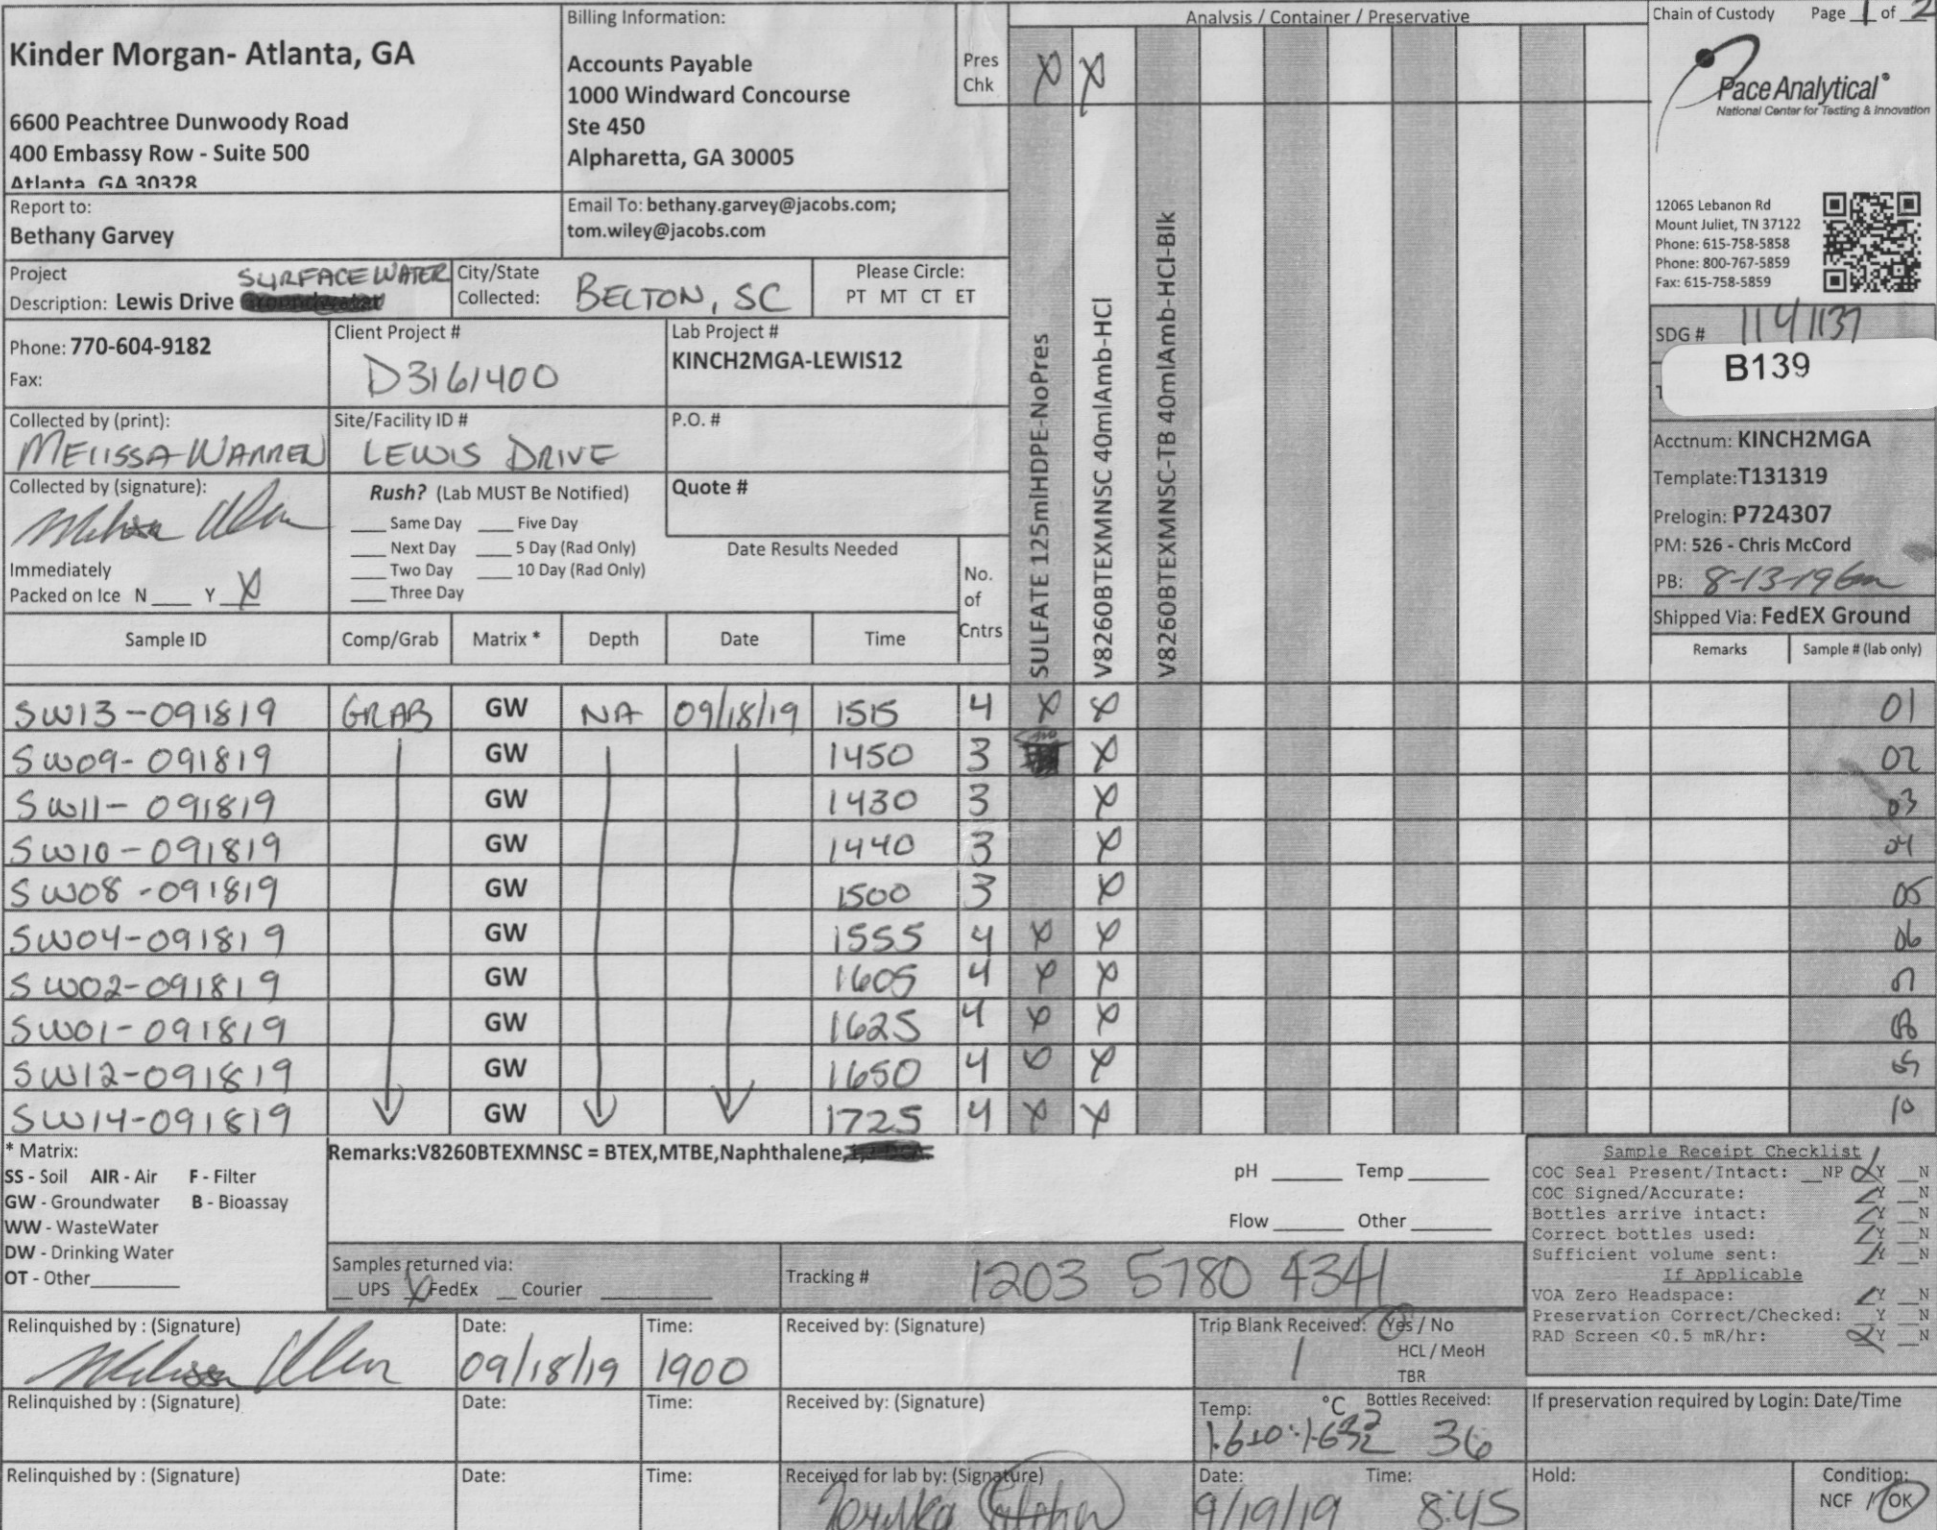 Kinder Morgan- Atlanta, GA
6600 Peachtree Dunwoody Road
400 Embassy Row - Suite 500
Atlanta, GA 30328
Billing Information:
Accounts Payable
1000 Windward Concourse
Ste 450
Alpharetta, GA 30005
Pres
Chk
X X
Analysis / Container / Preservative
Chain of Custody Page 1 of 2
Pace Analytical®
National Center for Testing & Innovation
12065 Lebanon Rd
Mount Juliet, TN 37122
Phone: 615-758-5858
Phone: 800-767-5859
Fax: 615-758-5859
Report to:
Bethany Garvey
Email To: bethany.garvey@jacobs.com;
tom.wiley@jacobs.com
Project
Description: Lewis Drive SURFACE WATER
City/State
Collected: BELTON, SC
Please Circle:
PT MT CT ET
Phone: 770-604-9182
Fax:
Client Project #
D3161400
Lab Project #
KINCH2MGA-LEWIS12
Collected by (print):
MELISSA WARREN
Site/Facility ID #
LEWIS DRIVE
P.O. #
Collected by (signature):
Rush? (Lab MUST Be Notified)
___ Same Day ___ Five Day
___ Next Day ___ 5 Day (Rad Only)
___ Two Day ___ 10 Day (Rad Only)
___ Three Day
Quote #
Date Results Needed
Immediately
Packed on Ice N ___ Y X
No.
of
Cntrs
SULFATE 125mlHDPE-NoPres
V8260BTEXMNSC 40mlAmb-HCl
V8260BTEXMNSC-TB 40mlAmb-HCl-Blk
SDG # 1141137
B139
Acctnum: KINCH2MGA
Template: T131319
Prelogin: P724307
PM: 526 - Chris McCord
PB: 8-13-19
Shipped Via: FedEX Ground
Sample ID Comp/Grab Matrix * Depth Date Time Remarks Sample # (lab only)
SW13-091819 GRAB GW NA 09/18/19 1515 4 X X 01
SW09-091819 GW 1450 3 X 02
SW11-091819 GW 1430 3 X 03
SW10-091819 GW 1440 3 X 04
SW08-091819 GW 1500 3 X 05
SW04-091819 GW 1555 4 X X 06
SW02-091819 GW 1605 4 X X 07
SW01-091819 GW 1625 4 X X 08
SW12-091819 GW 1650 4 X X 09
SW14-091819 GW 1725 4 X X 10
* Matrix:
SS - Soil AIR - Air F - Filter
GW - Groundwater B - Bioassay
WW - WasteWater
DW - Drinking Water
OT - Other
Remarks:V8260BTEXMNSC = BTEX,MTBE,Naphthalene,
pH ___ Temp ___
Flow ___ Other ___
Samples returned via:
__ UPS X FedEx __ Courier
Tracking # 1203 5780 4341
Sample Receipt Checklist
COC Seal Present/Intact: __NP Y __N
COC Signed/Accurate: Y __N
Bottles arrive intact: Y __N
Correct bottles used: Y __N
Sufficient volume sent: Y __N
If Applicable
VOA Zero Headspace: Y __N
Preservation Correct/Checked: __Y __N
RAD Screen <0.5 mR/hr: Y __N
Relinquished by : (Signature)
Date:
09/18/19
Time:
1900
Received by: (Signature)
Trip Blank Received: Yes / No
1
HCL / MeoH
TBR
Relinquished by : (Signature)
Date:
Time:
Received by: (Signature)
Temp: °C Bottles Received:
36
If preservation required by Login: Date/Time
Relinquished by : (Signature)
Date:
Time:
Received for lab by: (Signature)
Date:
9/19/19
Time:
8:45
Hold:
Condition:
NCF / OK